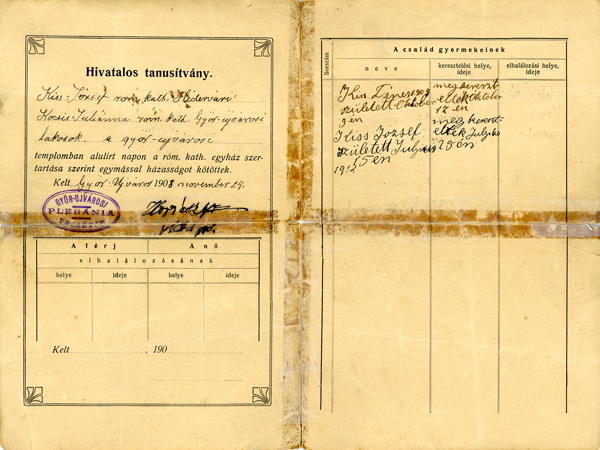 Hivatalos tanusítvány.
Kiss József rom. kath. Hédervári
Kocsis Juliánna rom. kath. Győr-ujvárosi
lakosok a győr-ujvárosi
templomban alulirt napon a róm. kath. egyház szer-
tartása szerint egymással házasságot kötöttek.
Kelt Győr-Ujváros 1908 november 24.
GYŐR-UJVÁROSI
PLEBÁNIA
A férj
A nő
elhalálozásának
helye
ideje
helye
ideje
Kelt , 190
Sorszám
A család gyermekeinek
neve
keresztelési helye,
ideje
elhalálozási helye,
ideje
Kiss Dénes 1909
született Oktober
9 én
megkereszt-
eltek Oktober
17 én
Kiss Jozsef
született Julyius
1912 15 én
megkereszt-
eltek Julyius
20 én